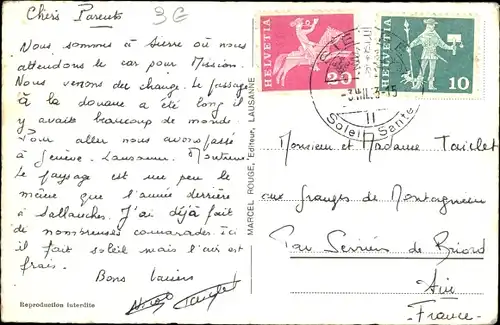 Chers Parents
3G
Nous sommes à Sierre où nous
attendons le car pour Mission.
Nous venons du change. Le passage
à la douane a été long il
y avait beaucoup de monde
Pour aller nous avons passé
à Genève. Lausanne. Montreux
Le paysage est un peu le
même que l'année dernière
à Sallanches. J'ai déjà fait
de nombreuses camarades. ici
il fait soleil mais l'air est
frais.
Bons baisers
Reproduction interdite
MARCEL ROUGE, Editeur, LAUSANNE
HELVETIA
20
HELVETIA
10
-3.VIII.63-15
11
Soleil Santé
Monsieur et Madame
aux granges de Montagnieu
Par Serrières de Briord
Ain
- France -